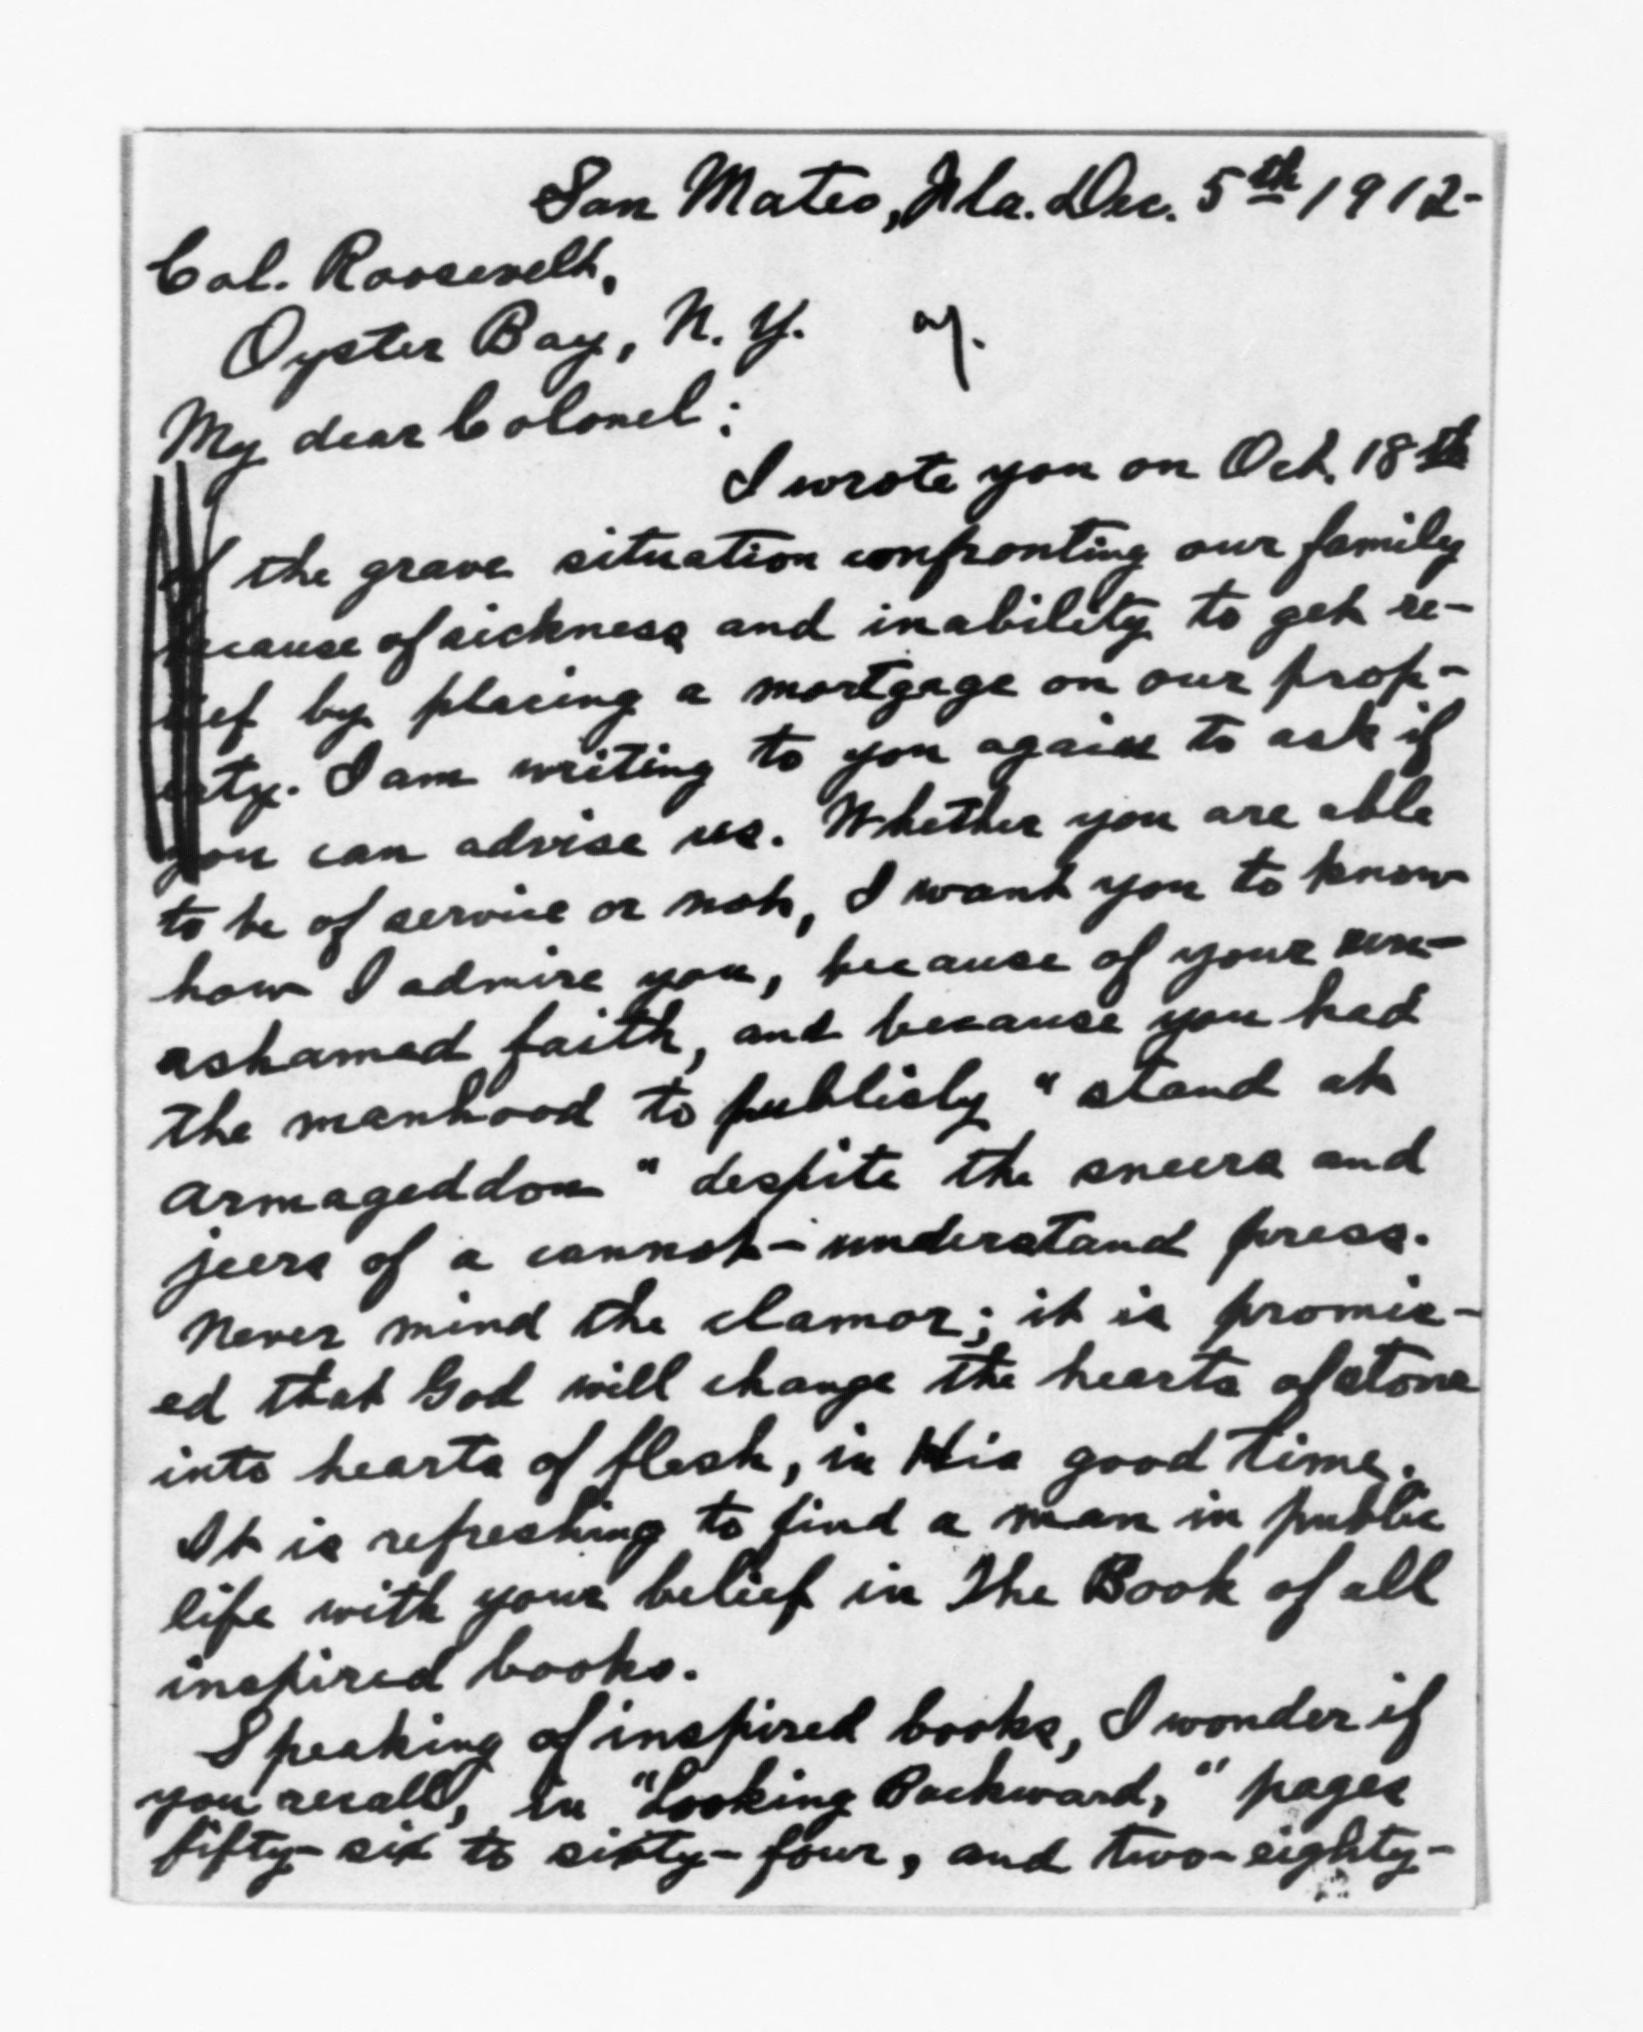 San Mateo, Fla. Dec. 5th 1912-
Col. Roosevelt,
Oyster Bay, N. Y.
My dear Colonel:
I wrote you on Oct. 18th
of the grave situation confronting our family
because of sickness and inability to get re-
lief by placing a mortgage on our prop-
erty. I am writing to you again to ask if
you can advise us. Whether you are able
to be of service or not, I want you to know
how I admire you, because of your un-
ashamed faith, and because you had
the manhood to publicly "stand at
Armageddon" despite the sneers and
jeers of a cannot-understand press.
Never mind the clamor; it is promis-
ed that God will change the hearts of stone
into hearts of flesh, in His good time.
It is refreshing to find a man in public
life with your belief in The Book of all
inspired books.
Speaking of inspired books, I wonder if
you recall, in "Looking Backward," pages
fifty-six to sixty-four, and two-eighty-